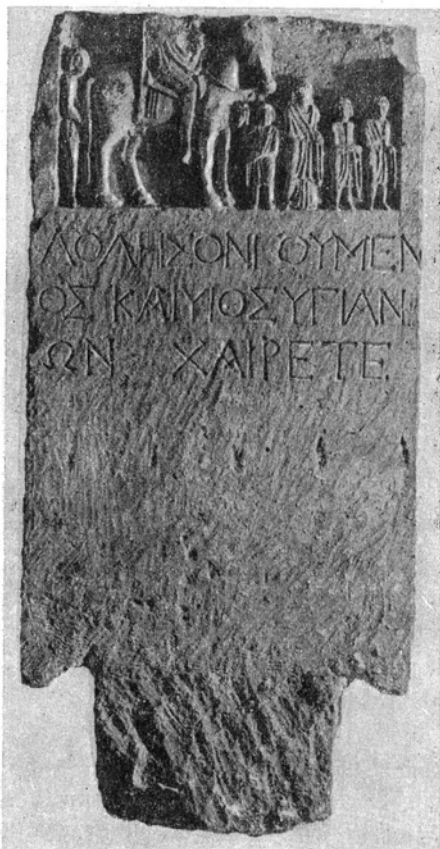 ΛΟΛΗΣΟΝΙ ΟΥΜΕΝ
ΟΣ ΚΑΙ ΥΙΟΣ ΥΓΙΑΝ
ΩΝ ΧΑΙΡΕΤΕ